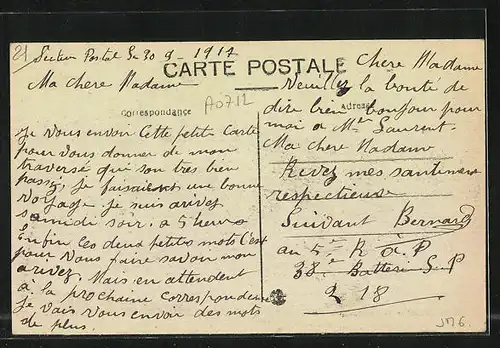 21
Secteur Postal 5a 30 9 - 1917
CARTE POSTALE
Ma chere Madame
Correspondance
A0712
Je Vous envoir Cette petit Carte
pour Vous donner de mon
traversé qui son tres bien
passez, Je faisaient une bonne
voyage. Je suis arivez
samidi soir, a 5 heurs
Enfin les deux petits mots C'est
pour Vous faire savoir mon
arivez. Mais en attendent
à la prochaine Correspondence
Je vais Vous envoir des mots
de plus.
Chere Madame
Veuillez la bonté de
Adresse
dire bien bonjour pour
moi a Mr Laurent.
Ma Chere Madame
Revez mes santement
respectieuse
Suivant Bernard
au 5me R à P
38e Batterie S-P
218
JM6.